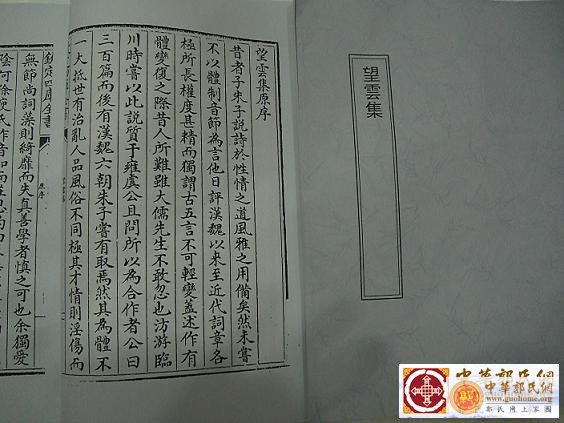 望雲集
望雲集原序
昔者子朱子説詩於性情之道風雅之用備矣然未嘗
不以體制音節為言他日評漢魏以來至近代詞章各
極所長權度甚精而獨謂古五言不可輕變蓋述作有
體變復之際昔人所難雖大儒先生不敢忽也汸游臨
川時嘗以此説質于雍虞公且問所以為合作者公曰
三百篇而後有漢魏六朝朱子嘗有取焉然其為體不
一大抵世有治亂人品風俗不同極其才情則淫傷而
欽定四庫全書
原序
無節尚詞藻則綺靡而失真善學者慎之可也余獨愛
陰何徐庾氏作者和而莊思
中華郭氏網
中華郭氏網
www.guohome.org
郭氏網上家園